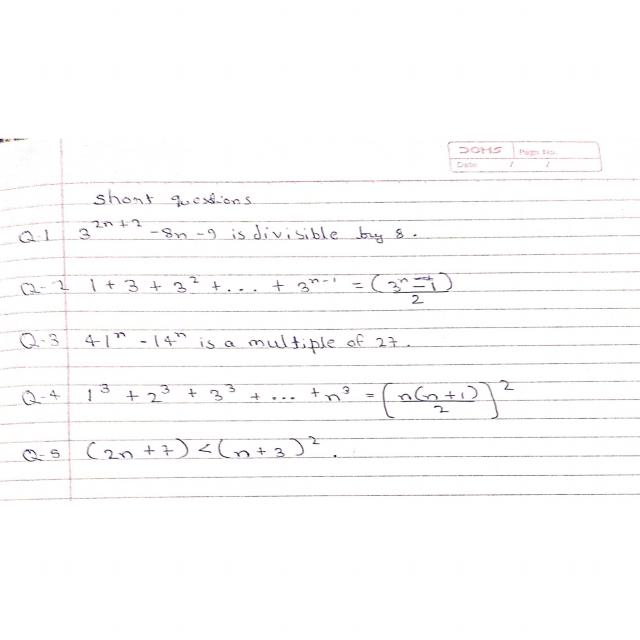 DOMS Page No.
Date / /
short questions
Q.1 3^{2n+2} -8n -9 is divisible by 8.
Q-2 1 + 3 + 3² + ... + 3^{n-1} = (3ⁿ-1)/2
Q.3 41ⁿ - 14ⁿ is a multiple of 27.
Q-4 1³ + 2³ + 3³ + ... + n³ = [n(n+1)/2]²
Q-5 (2n+7) < (n+3)².